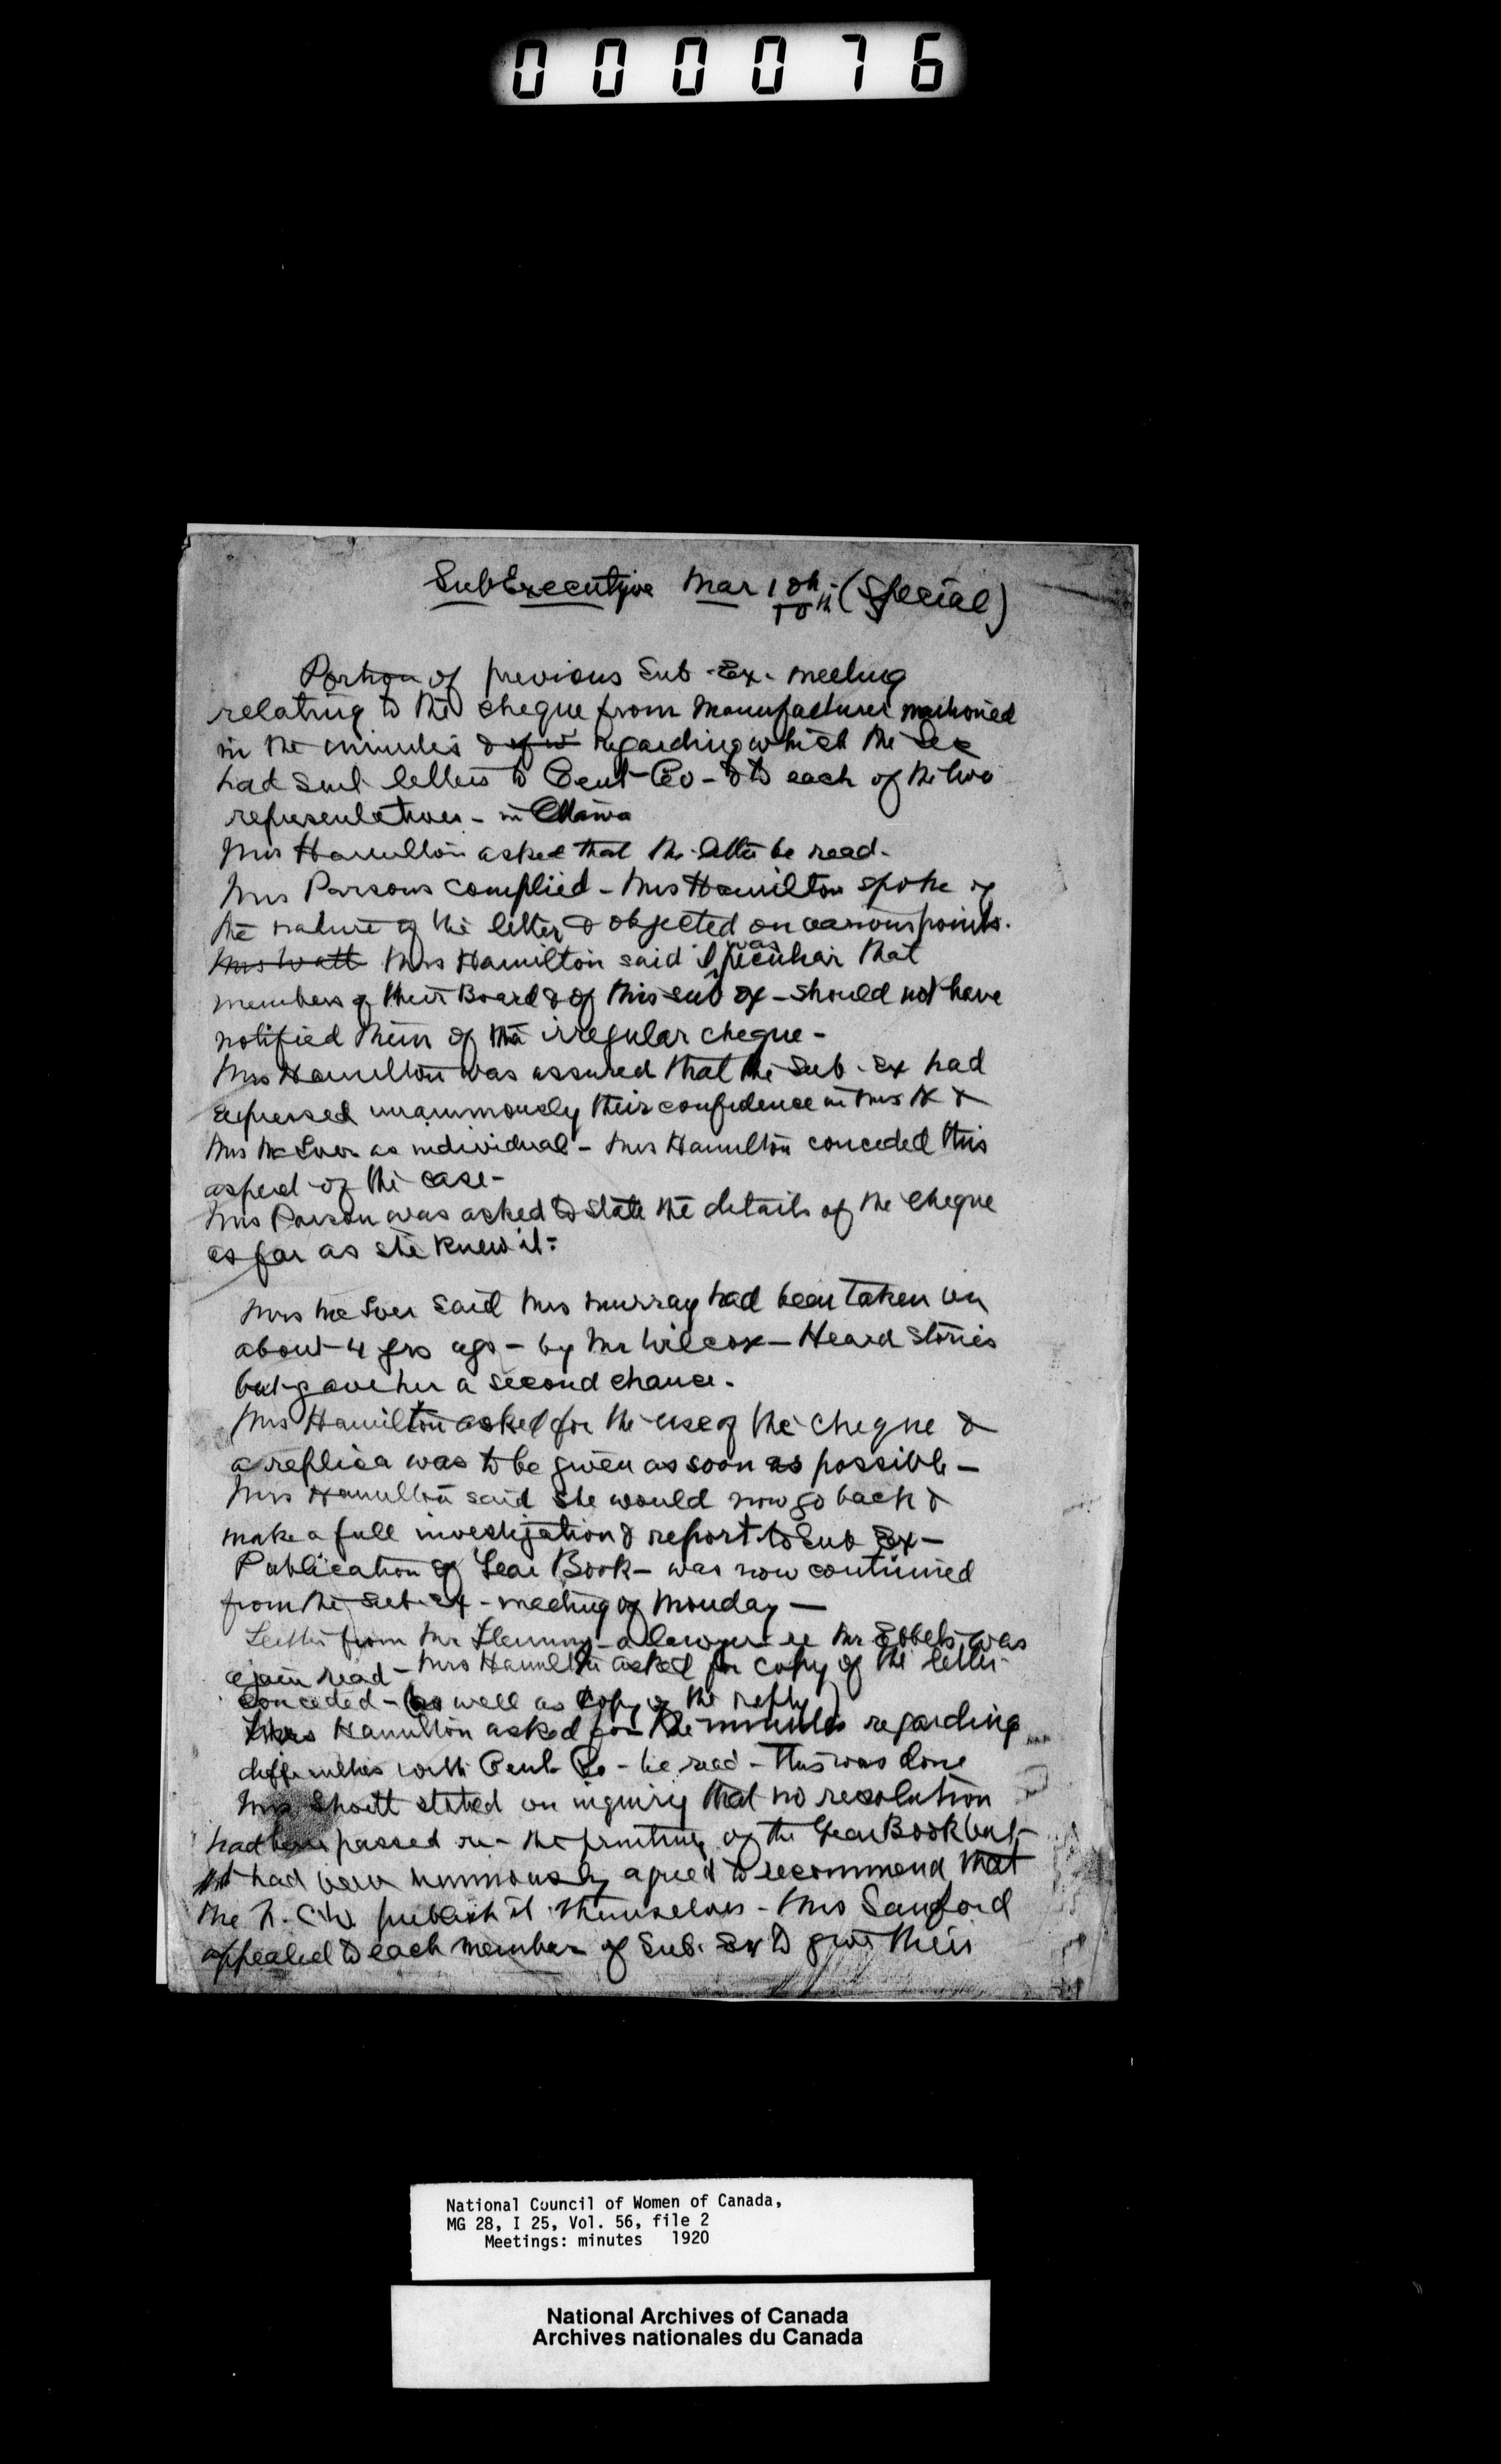 000076
SubExecutive Mar 10th (Special)
10th
Portion of previous Sub-Ex. meeting
relating to the cheque from Manufacturer mentioned
in the minutes & of w regarding which the Sec
had sent letters to Cent-Co - & to each of the two
representatives - in Ottawa
Mrs Hamilton asked that the letter be read.
Mrs Parsons complied - Mrs Hamilton spoke of
the nature of the letter & objected on various points.
Mrs Watt Mrs Hamilton said it was peculiar that
members of their Board & of this sub ex - should not have
notified them of the irregular cheque -
Mrs Hamilton was assured that the Sub-Ex had
expressed unanimously their confidence in Mrs H &
Mrs McIver as individual - Mrs Hamilton conceded this
aspect of the case -
Mrs Parson was asked to state the details of the cheque
as far as she knew it:
Mrs McIver said Mrs Murray had been taken on
about 4 yrs ago - by Mr Wilcox - Heard stories
but gave her a second chance.
Mrs Hamilton asked for the use of the cheque &
a replica was to be given as soon as possible -
Mrs Hamilton said she would now go back &
make a full investigation & report to Sub Ex -
Publication of Year Book - was now continued
from the Sub-Ex - meeting of Monday -
Letter from Mr Fleming - a lawyer re Mr Ebbels was
again read - Mrs Hamilton asked for copy of the letter
conceded - (as well as copy of the reply)
Mrs Hamilton asked for the minutes regarding
difficulties with Cent. Co - be read - This was done
Mrs Shortt stated on inquiry that no resolution
had been passed re - the printing of the Year Book but
it had been unanimously agreed to recommend that
the N.C.W. publish it themselves - Mrs Sanford
appealed to each member of Sub. Ex to give their
National Council of Women of Canada,
MG 28, I 25, Vol. 56, file 2
Meetings: minutes 1920
National Archives of Canada
Archives nationales du Canada